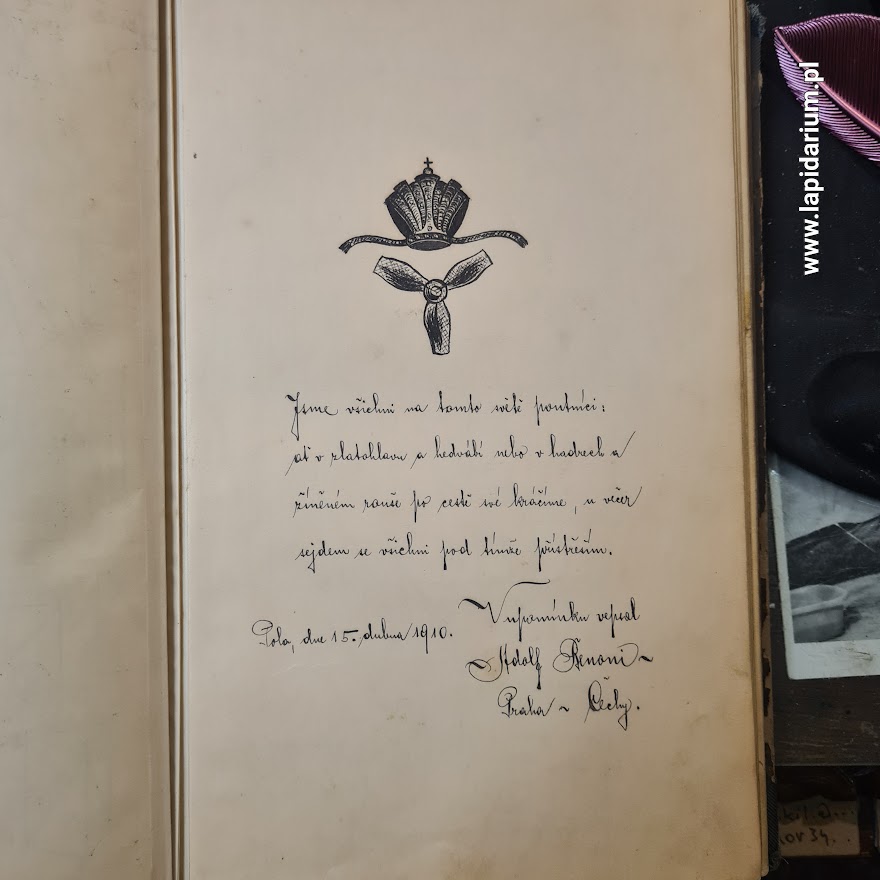 Jsme všichni na tomto světě poutníci:
ať v zlatohlavu a hedvábí nebo v hadrech a
žíněném rouše po cestě své kráčíme, u večer
sejdem se všichni pod tímže přístřeším.
V upomínku vepsal
Pola, dne 15. dubna 1910.
Adolf Benoni
Praha ~ Čechy.
www.lapidarium.pl